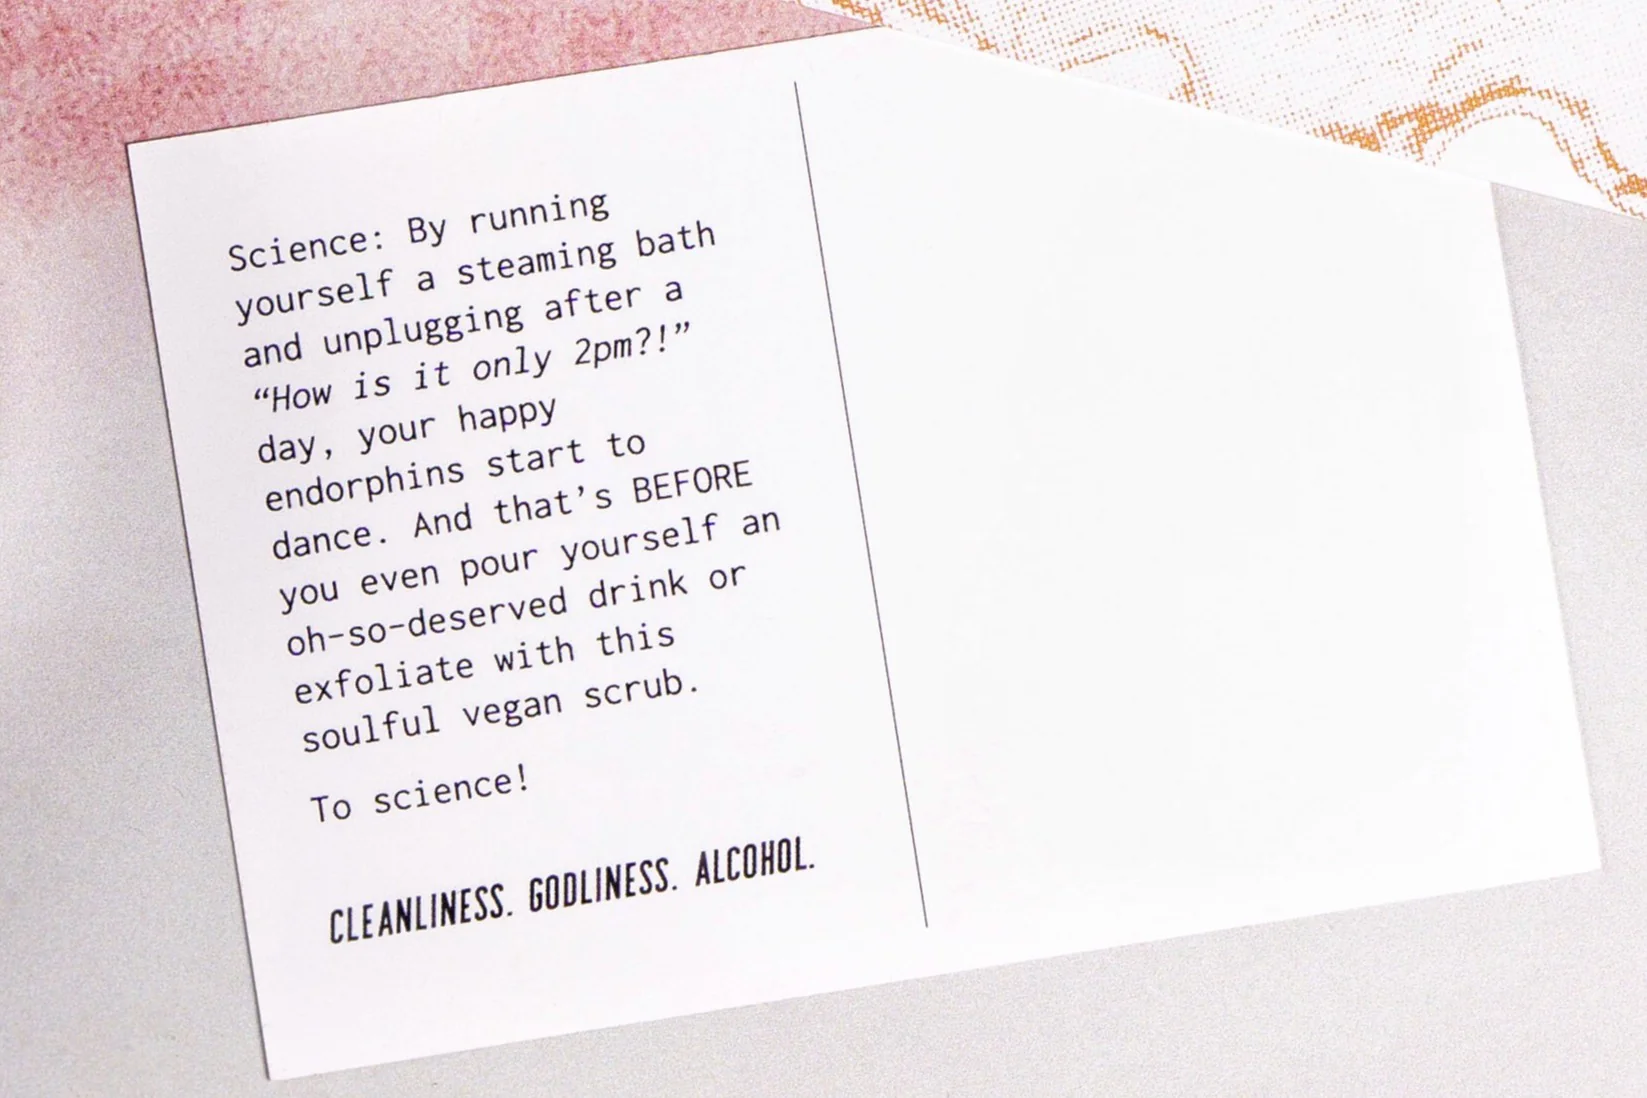 Science: By running
yourself a steaming bath
and unplugging after a
“How is it only 2pm?!”
day, your happy
endorphins start to
dance. And that’s BEFORE
you even pour yourself an
oh-so-deserved drink or
exfoliate with this
soulful vegan scrub.
To science!
CLEANLINESS. GODLINESS. ALCOHOL.